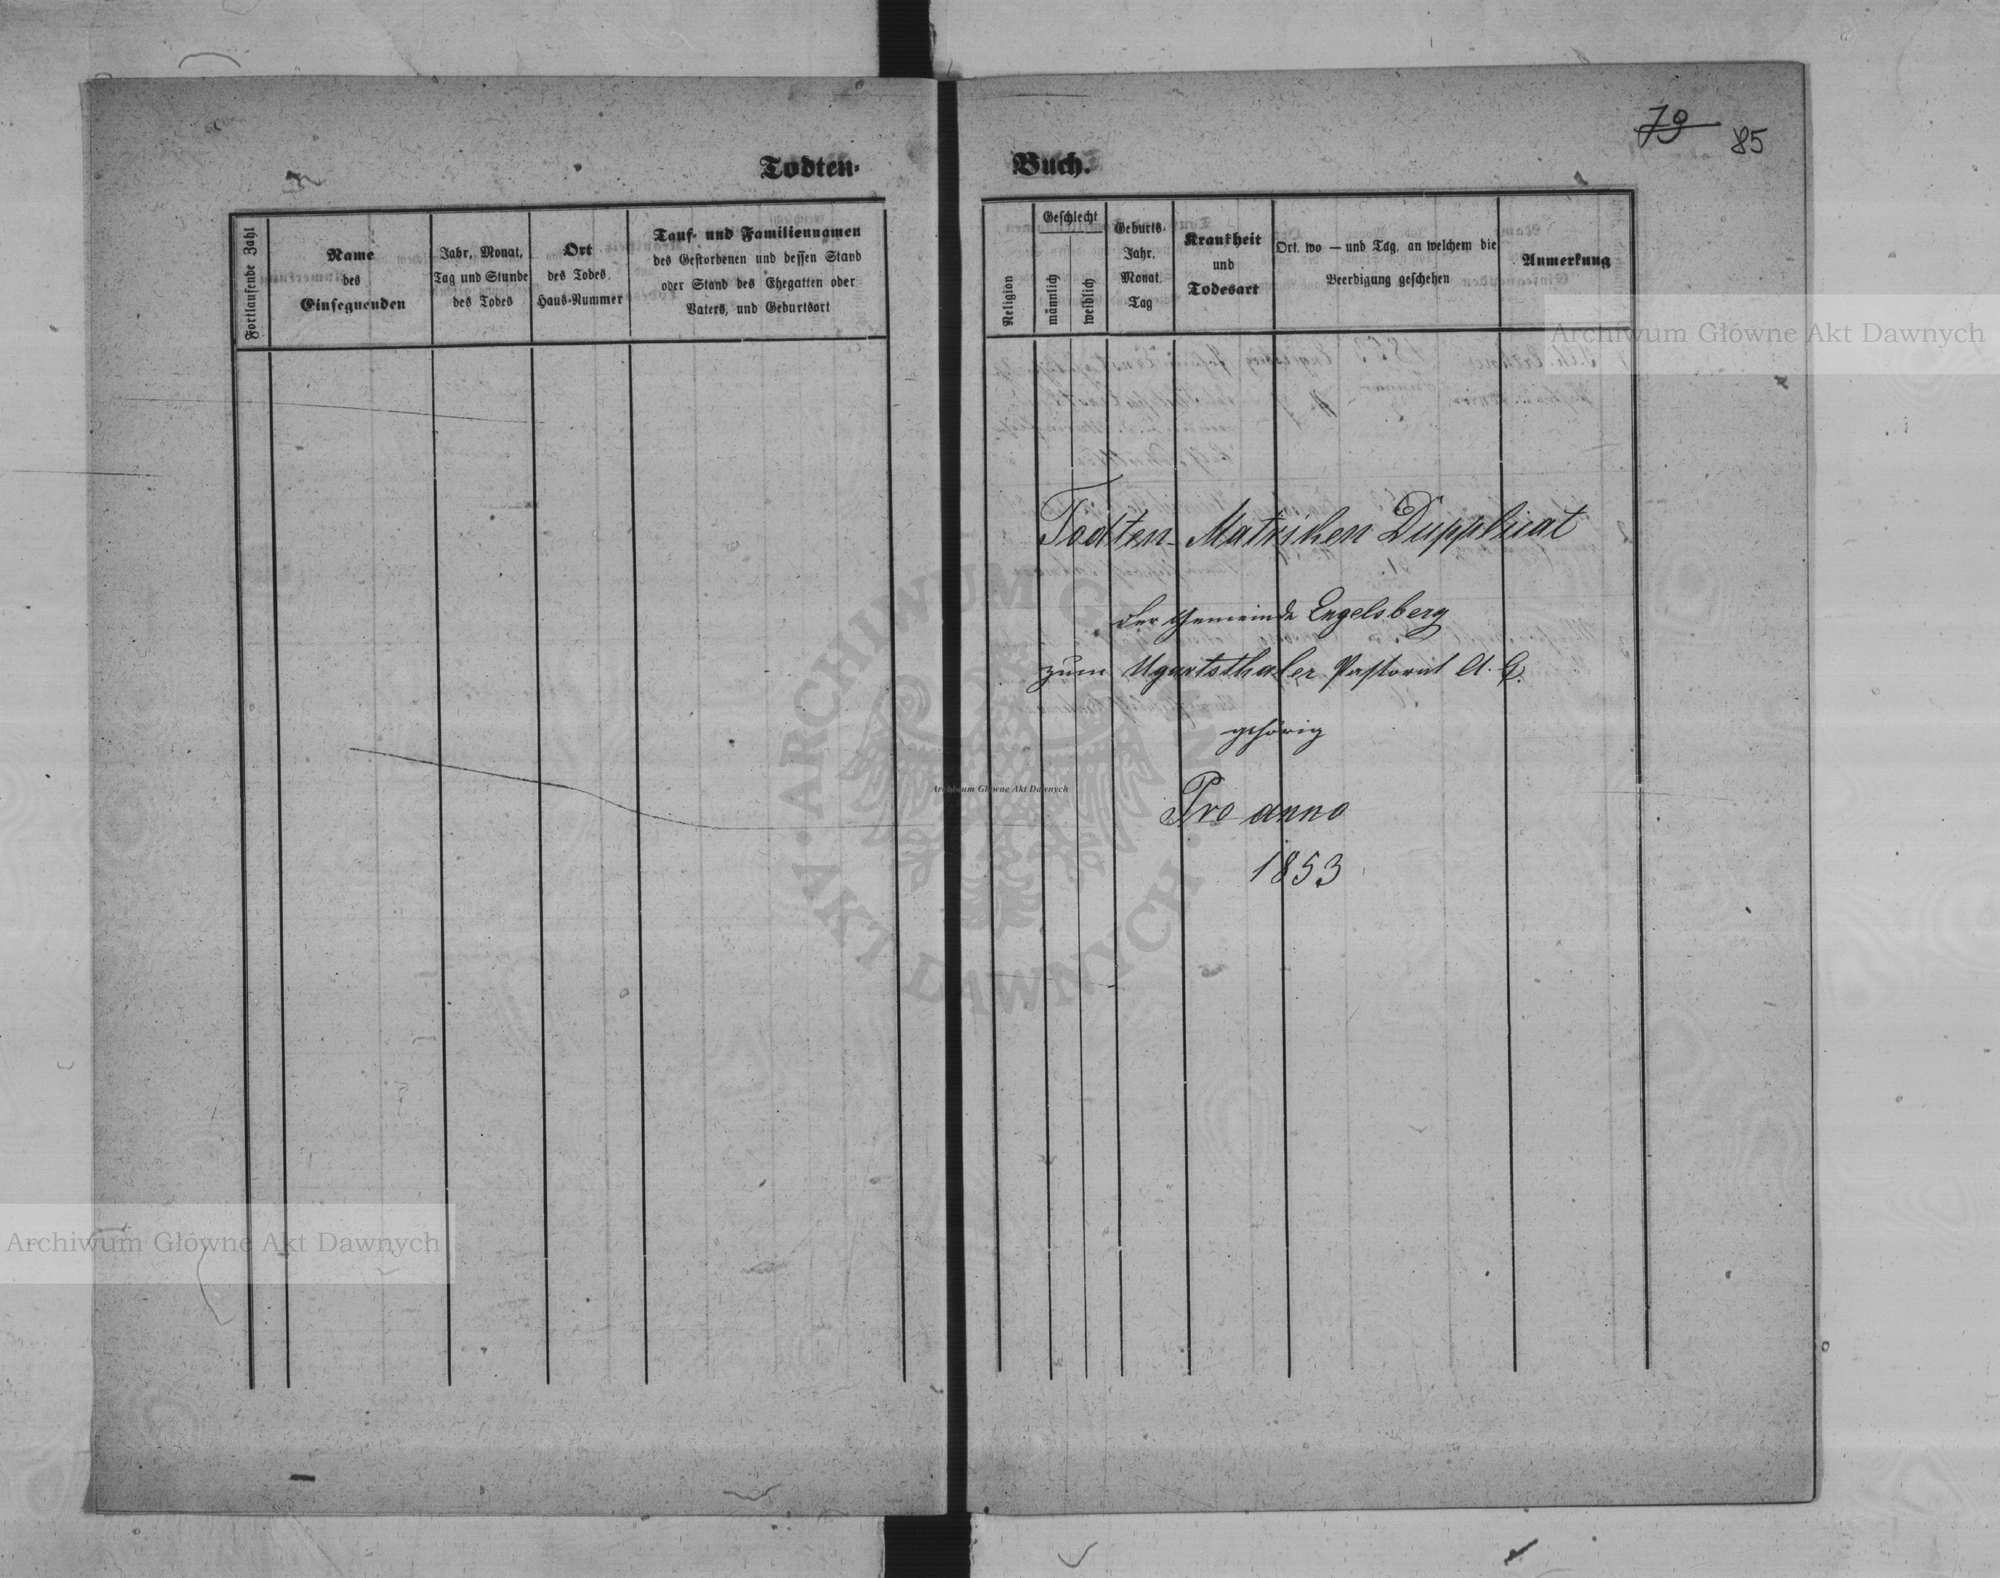 79 85
Todten-
Buch.
Fortlaufende Zahl
Name
des
Einsegnenden
Jahr, Monat,
Tag und Stunde
des Todes
Ort
des Todes,
Haus-Nummer
Tauf- und Familiennamen
des Gestorbenen und dessen Stand
oder Stand des Ehegatten oder
Vaters, und Geburtsort
Religion
Geschlecht
männlich
weiblich
Geburts-
Jahr,
Monat,
Tag
Krankheit
und
Todesart
Ort, wo — und Tag, an welchem die
Beerdigung geschehen
Anmerkung
Todten-Matriken Dupplicat
der Gemeinde Engelsberg
zum Ugartsthaler Pastorat A. C.
gehörig
Pro anno
1853
Archiwum Główne Akt Dawnych
Archiwum Główne Akt Dawnych
Archiwum Główne Akt Dawnych
ARCHIWUM GŁÓWNE
AKT DAWNYCH